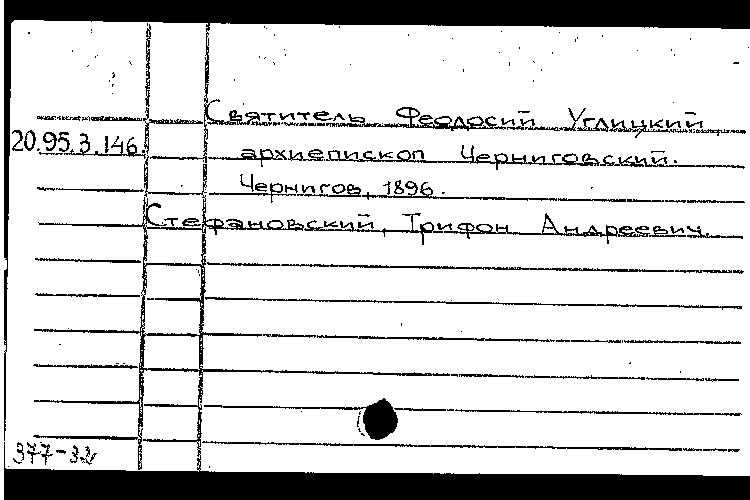 Святитель Феодосий Углицкий,
20.95.3.146. архиепископ Черниговский.
Чернигов, 1896.
Стефановский, Трифон Андреевич.
377-32